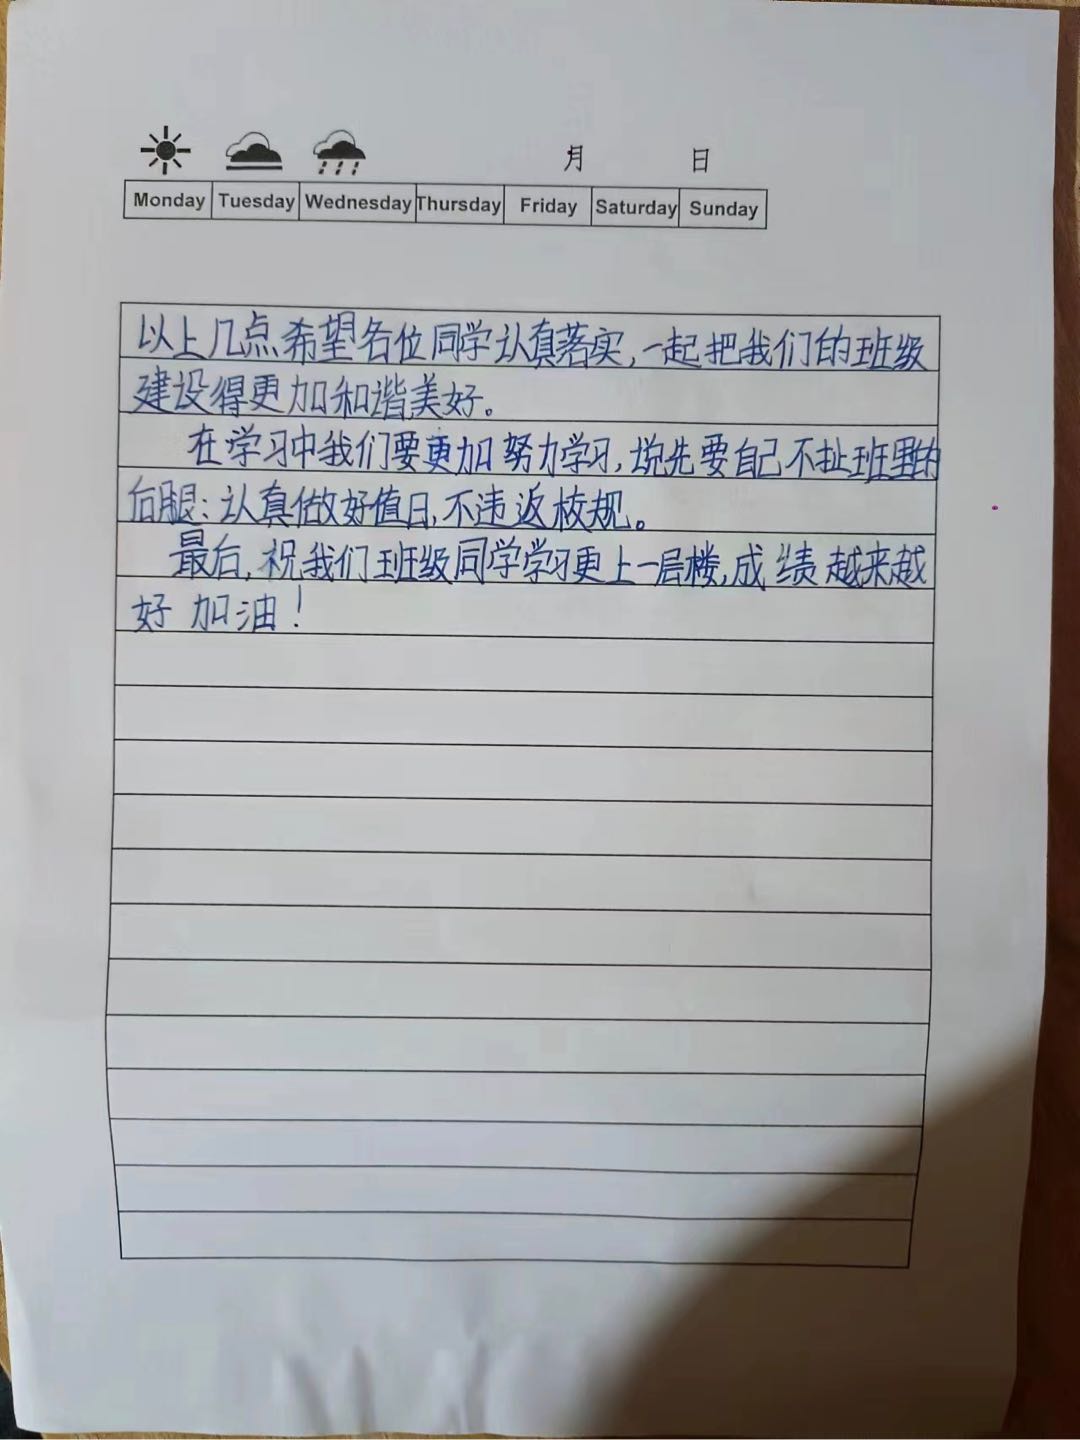 月 日
Monday Tuesday Wednesday Thursday Friday Saturday Sunday
以上几点希望各位同学认真落实,一起把我们的班级
建设得更加和谐美好。
在学习中我们要更加努力学习,说先要自己不扯班里的
后腿:认真做好值日,不违返校规。
最后,祝我们班级同学学习更上一层楼,成绩越来越
好 加油!